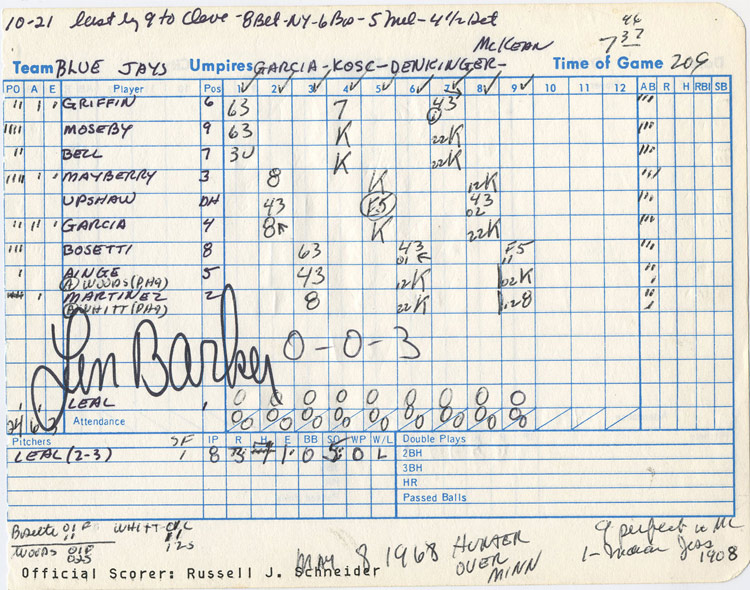 10-21 last by 9 to Cleve - 8 Bal - NY - 6 Bo - 5 Mil - 4 1/2 Det
McKEAN 7 37
Team BLUE JAYS Umpires GARCIA-KOSC-DENKINGER- Time of Game 209
PO A E Player Pos 1 2 3 4 5 6 7 8 9 10 11 12 AB R H RBI SB
GRIFFIN 6 63 7 43
MOSEBY 9 63 K 22K
BELL 7 3U K 22K
MAYBERRY 3 8 K 12K
UPSHAW DH 43 E5 43 02
GARCIA 4 8 K 22K
BOSETTI 8 63 43 01 F5 11
AINGE 5 43 12K 02K
(A) WOODS (PH9)
MARTINEZ 2 8 22K 128
(B) WHITT (PH9)
Len Barker 0-0-3
LEAL 1 0 0 0 0 0 0 0 0 0
24 6 Attendance 0/0 0/0 0/0 0/0 0/0 0/0 0/0 0/0 0/0
Pitchers SF IP R H E BB SO WP W/L Double Plays
LEAL (2-3) 1 8 3 7 1 0 5 0 L 2BH
3BH
HR
Passed Balls
Bosetti 01F 11 WHITT
WOODS
9 perfect in ML
1- Indian Joss 1908
MAY 8 1968 HUNTER OVER MINN
Official Scorer: Russell J. Schneider